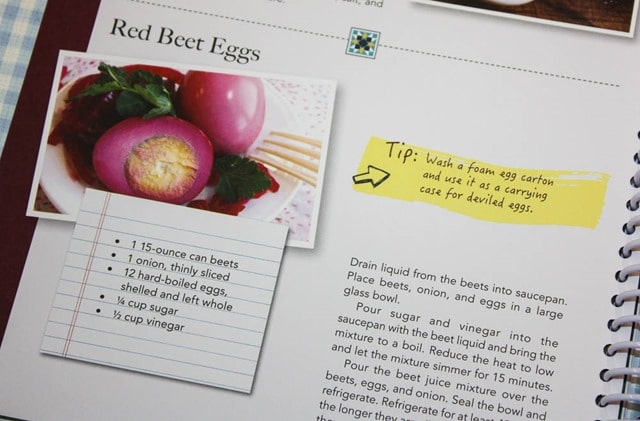 Red Beet Eggs
Tip: Wash a foam egg carton
and use it as a carrying
case for deviled eggs.
• 1 15-ounce can beets
• 1 onion, thinly sliced
• 12 hard-boiled eggs,
shelled and left whole
• ¼ cup sugar
• ½ cup vinegar
Drain liquid from the beets into saucepan.
Place beets, onion, and eggs in a large
glass bowl.
Pour sugar and vinegar into the
saucepan with the beet liquid and bring the
mixture to a boil. Reduce the heat to low
and let the mixture simmer for 15 minutes.
Pour the beet juice mixture over the
beets, eggs, and onion. Seal the bowl and
refrigerate. Refrigerate for at least
the longer they